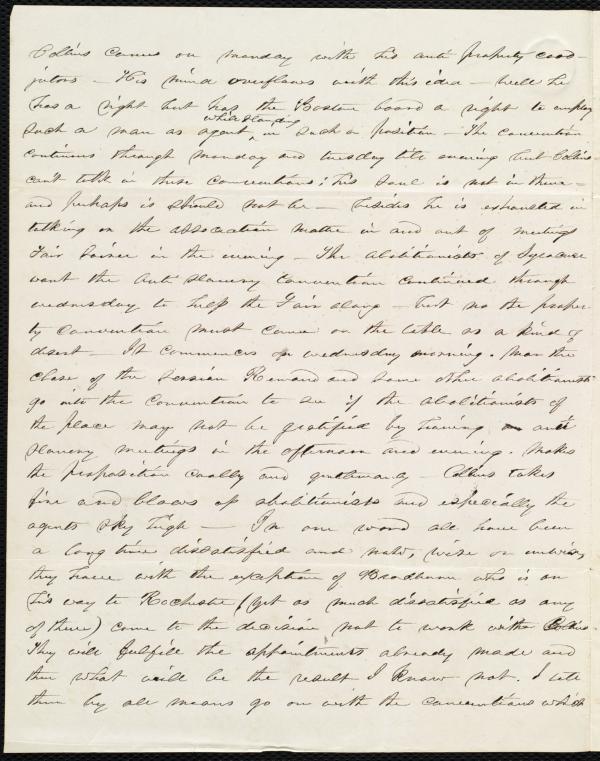 Collins comes on monday with his anti property coad-
jutors — His mind overflows with this idea — well he
has a right but has the Boston board a right to employ
such a man as agent while standing in such a position — The convention
continues through monday and tuesday till evening but Collins
can't talk in these conventions; his soul is not in them —
and perhaps is should not be — besides he is exhausted in
talking on the association matter in and out of meetings
Fair in the evening — The abolitionists of Syracuse
want the anti slavery convention continued through
wednesday to help the Fair along — but no the proper-
ty convention must come on the table as a kind of
desert — It commences on wednesday morning. Near the
close of the session Remond and some other abolitionists
go into the convention to see if the abolitionists of
the place may not be gratified by having anti
slavery meetings in the afternoon and evening. Makes
the proposition coolly and gentlemanly — Collins takes
fire and blows up abolitionists and especially the
agents sky high — In one word all have been
a long time dissatisfied and now, wise or unwise,
they have with the exception of Bradburn who is on
his way to Rochester (yet as much dissatisfied as any
of them) come to the decision not to work with Collins.
They will fulfill the appointments already made and
then what will be the result I know not. I tell
them by all means go on with the conventions which